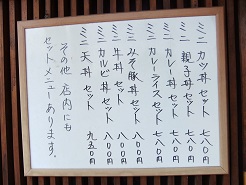 ミニ カツ丼 セット 七八〇円
ミニ 親子丼 セット 七八〇円
ミニ カレー丼 セット 七八〇円
ミニ カレーライスセット 七八〇円
ミニ みそ豚丼 セット 八〇〇円
ミニ 牛丼 セット 八〇〇円
ミニ カルビ丼 セット 八〇〇円
ミニ 天丼 セット 九五〇円
その他 店内にも
セットメニューあります。